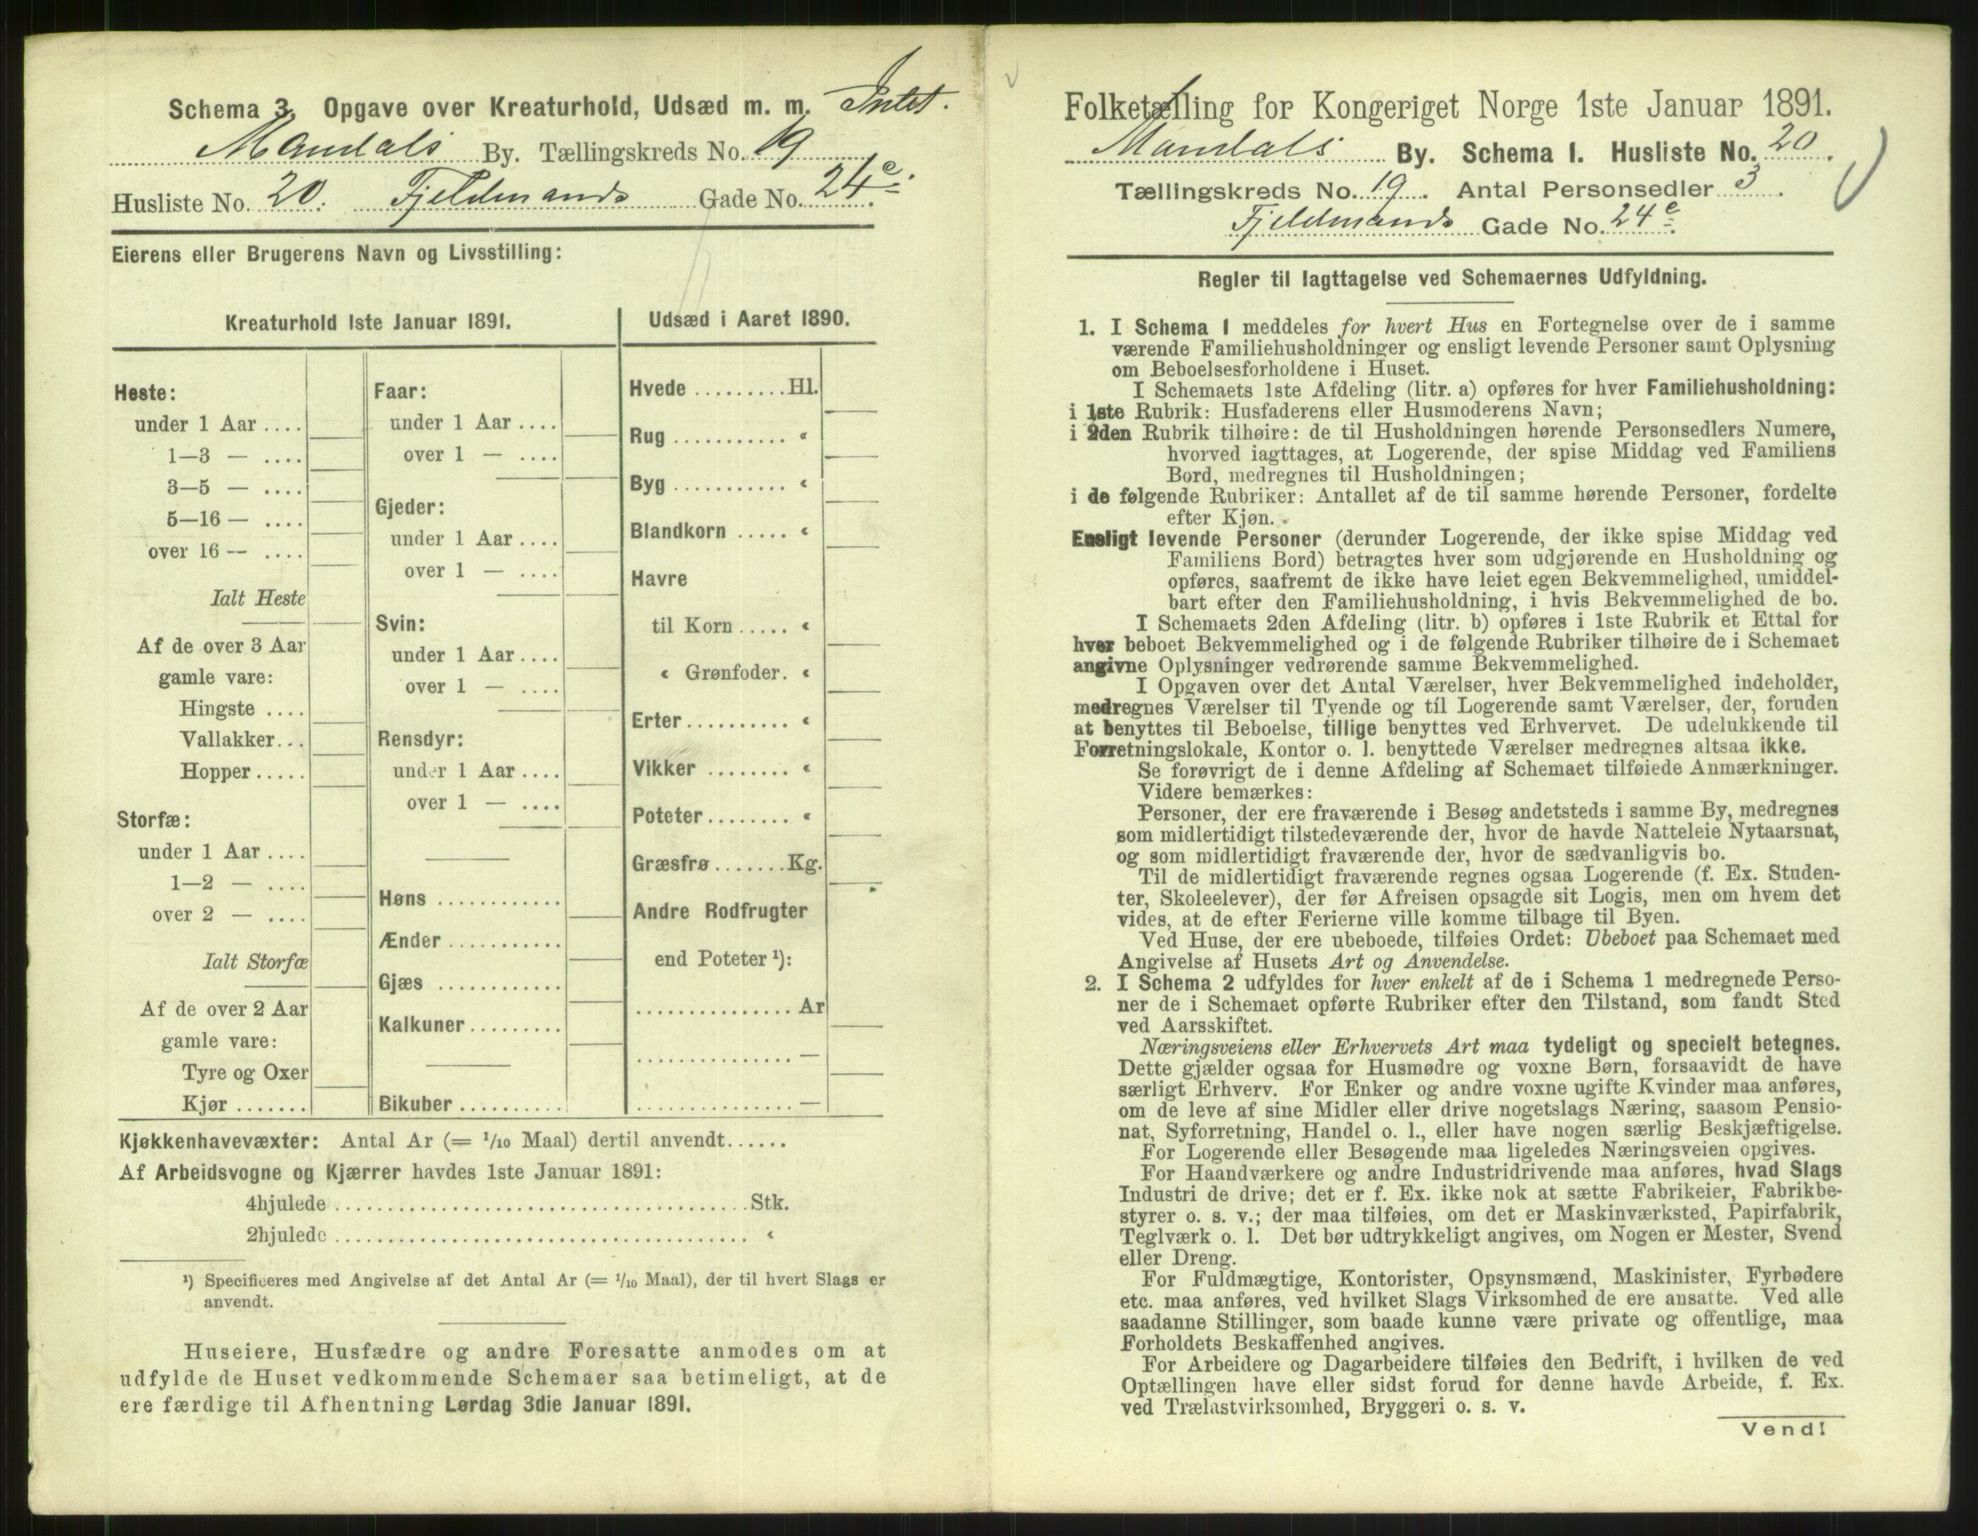 Schema 3. Opgave over Kreaturhold, Udsæd m. m. Intet.
Mandals By. Tællingskreds No. 19
Husliste No. 20. Fjeldmands Gade No. 24c.
Eierens eller Brugerens Navn og Livsstilling:
Kreaturhold 1ste Januar 1891.
Heste:
under 1 Aar ....
1—3 — ....
3—5 — ....
5—16 — ....
over 16 — ....
Ialt Heste
Af de over 3 Aar
gamle vare:
Hingste ....
Vallakker...
Hopper.....
Storfæ:
under 1 Aar ....
1—2 — ....
over 2 — ....
Ialt Storfæ
Af de over 2 Aar
gamle vare:
Tyre og Oxer
Kjør.......
Faar:
under 1 Aar ....
over 1 — ....
Gjeder:
under 1 Aar ....
over 1 — ....
Svin:
under 1 Aar ....
over 1 — ....
Rensdyr:
under 1 Aar ....
over 1 — ....
Høns ...........
Ænder ...........
Gjæs ...........
Kalkuner.........
Bikuber..........
Udsæd i Aaret 1890.
Hvede .........Hl.
Rug ........... «
Byg ........... «
Blandkorn ..... «
Havre
til Korn ..... «
« Grønfoder. «
Erter.......... «
Vikker ........ «
Poteter........ «
Græsfrø .......Kg.
Andre Rodfrugter
end Poteter ¹):
............... Ar
............... —
............... —
Kjøkkenhavevæxter: Antal Ar (= 1/10 Maal) dertil anvendt......
Af Arbeidsvogne og Kjærrer havdes 1ste Januar 1891:
4hjulede .....................................Stk.
2hjulede ..................................... «
¹) Specificeres med Angivelse af det Antal Ar (= 1/10 Maal), der til hvert Slags er
anvendt.
Huseiere, Husfædre og andre Foresatte anmodes om at
udfylde de Huset vedkommende Schemaer saa betimeligt, at de
ere færdige til Afhentning Lørdag 3die Januar 1891.
Folketælling for Kongeriget Norge 1ste Januar 1891.
Mandals By. Schema 1. Husliste No. 20.
Tællingskreds No. 19. Antal Personsedler 3.
Fjeldmands Gade No. 24c.
Regler til Iagttagelse ved Schemaernes Udfyldning.
1. I Schema 1 meddeles for hvert Hus en Fortegnelse over de i samme
værende Familiehusholdninger og ensligt levende Personer samt Oplysning
om Beboelsesforholdene i Huset.
I Schemaets 1ste Afdeling (litr. a) opføres for hver Familiehusholdning:
i 1ste Rubrik: Husfaderens eller Husmoderens Navn;
i 2den Rubrik tilhøire: de til Husholdningen hørende Personsedlers Numere,
hvorved iagttages, at Logerende, der spise Middag ved Familiens
Bord, medregnes til Husholdningen;
i de følgende Rubriker: Antallet af de til samme hørende Personer, fordelte
efter Kjøn.
Ensligt levende Personer (derunder Logerende, der ikke spise Middag ved
Familiens Bord) betragtes hver som udgjørende en Husholdning og
opføres, saafremt de ikke have leiet egen Bekvemmelighed, umiddel-
bart efter den Familiehusholdning, i hvis Bekvemmelighed de bo.
I Schemaets 2den Afdeling (litr. b) opføres i 1ste Rubrik et Ettal for
hver beboet Bekvemmelighed og i de følgende Rubriker tilhøire de i Schemaet
angivne Oplysninger vedrørende samme Bekvemmelighed.
I Opgaven over det Antal Værelser, hver Bekvemmelighed indeholder,
medregnes Værelser til Tyende og til Logerende samt Værelser, der, foruden
at benyttes til Beboelse, tillige benyttes ved Erhvervet. De udelukkende til
Forretningslokale, Kontor o. l. benyttede Værelser medregnes altsaa ikke.
Se forøvrigt de i denne Afdeling af Schemaet tilføiede Anmærkninger.
Videre bemærkes:
Personer, der ere fraværende i Besøg andetsteds i samme By, medregnes
som midlertidigt tilstedeværende der, hvor de havde Natteleie Nytaarsnat,
og som midlertidigt fraværende der, hvor de sædvanligvis bo.
Til de midlertidigt fraværende regnes ogsaa Logerende (f. Ex. Studen-
ter, Skoleelever), der før Afreisen opsagde sit Logis, men om hvem det
vides, at de efter Ferierne ville komme tilbage til Byen.
Ved Huse, der ere ubeboede, tilføies Ordet: Ubeboet paa Schemaet med
Angivelse af Husets Art og Anvendelse.
2. I Schema 2 udfyldes for hver enkelt af de i Schema 1 medregnede Perso-
ner de i Schemaet opførte Rubriker efter den Tilstand, som fandt Sted
ved Aarsskiftet.
Næringsveiens eller Erhvervets Art maa tydeligt og specielt betegnes.
Dette gjælder ogsaa for Husmødre og voxne Børn, forsaavidt de have
særligt Erhverv. For Enker og andre voxne ugifte Kvinder maa anføres,
om de leve af sine Midler eller drive nogetslags Næring, saasom Pensio-
nat, Syforretning, Handel o. l., eller have nogen særlig Beskjæftigelse.
For Logerende eller Besøgende maa ligeledes Næringsveien opgives.
For Haandværkere og andre Industridrivende maa anføres, hvad Slags
Industri de drive; det er f. Ex. ikke nok at sætte Fabrikeier, Fabrikbe-
styrer o. s. v.; der maa tilføies, om det er Maskinværksted, Papirfabrik,
Teglværk o. l. Det bør udtrykkeligt angives, om Nogen er Mester, Svend
eller Dreng.
For Fuldmægtige, Kontorister, Opsynsmænd, Maskinister, Fyrbødere
etc. maa anføres, ved hvilket Slags Virksomhed de ere ansatte. Ved alle
saadanne Stillinger, som baade kunne være private og offentlige, maa
Forholdets Beskaffenhed angives.
For Arbeidere og Dagarbeidere tilføies den Bedrift, i hvilken de ved
Optællingen have eller sidst forud for denne havde Arbeide, f. Ex.
ved Trælastvirksomhed, Bryggeri o. s. v.
Vend!